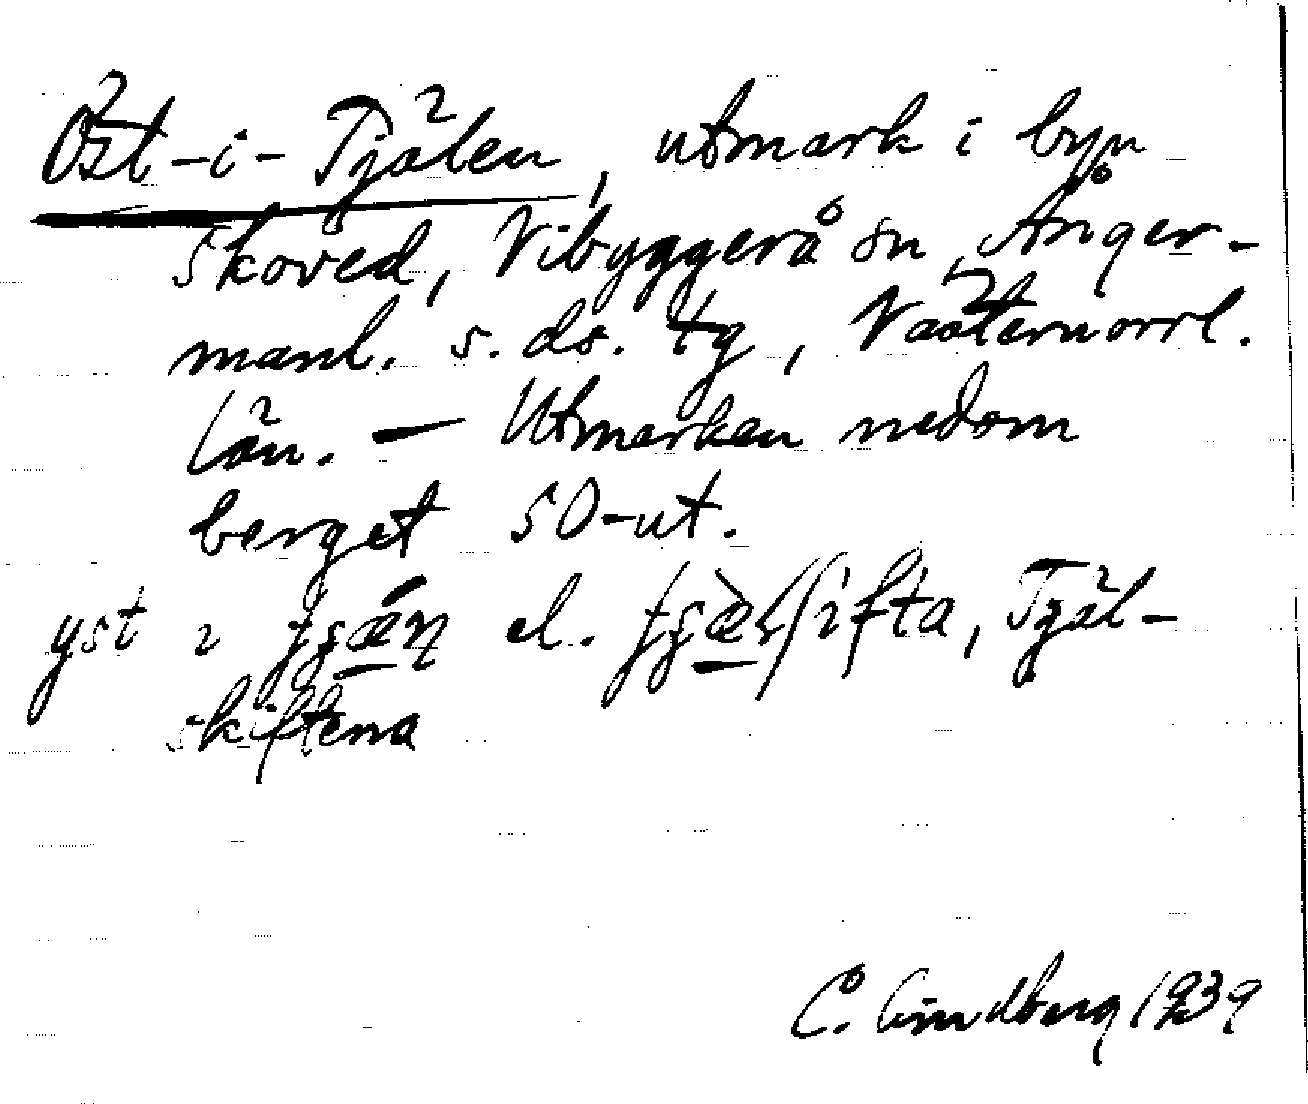 Öst-i-Tjälen, utmark i byn
Skoved, Vibyggerå sn, Ånger-
manl. s. ds. tg, Västernorrl.
län. — Utmarken nedom
berget SO-ut.
yst i el. Tjäl-
skiftena
C. Lindberg 1939